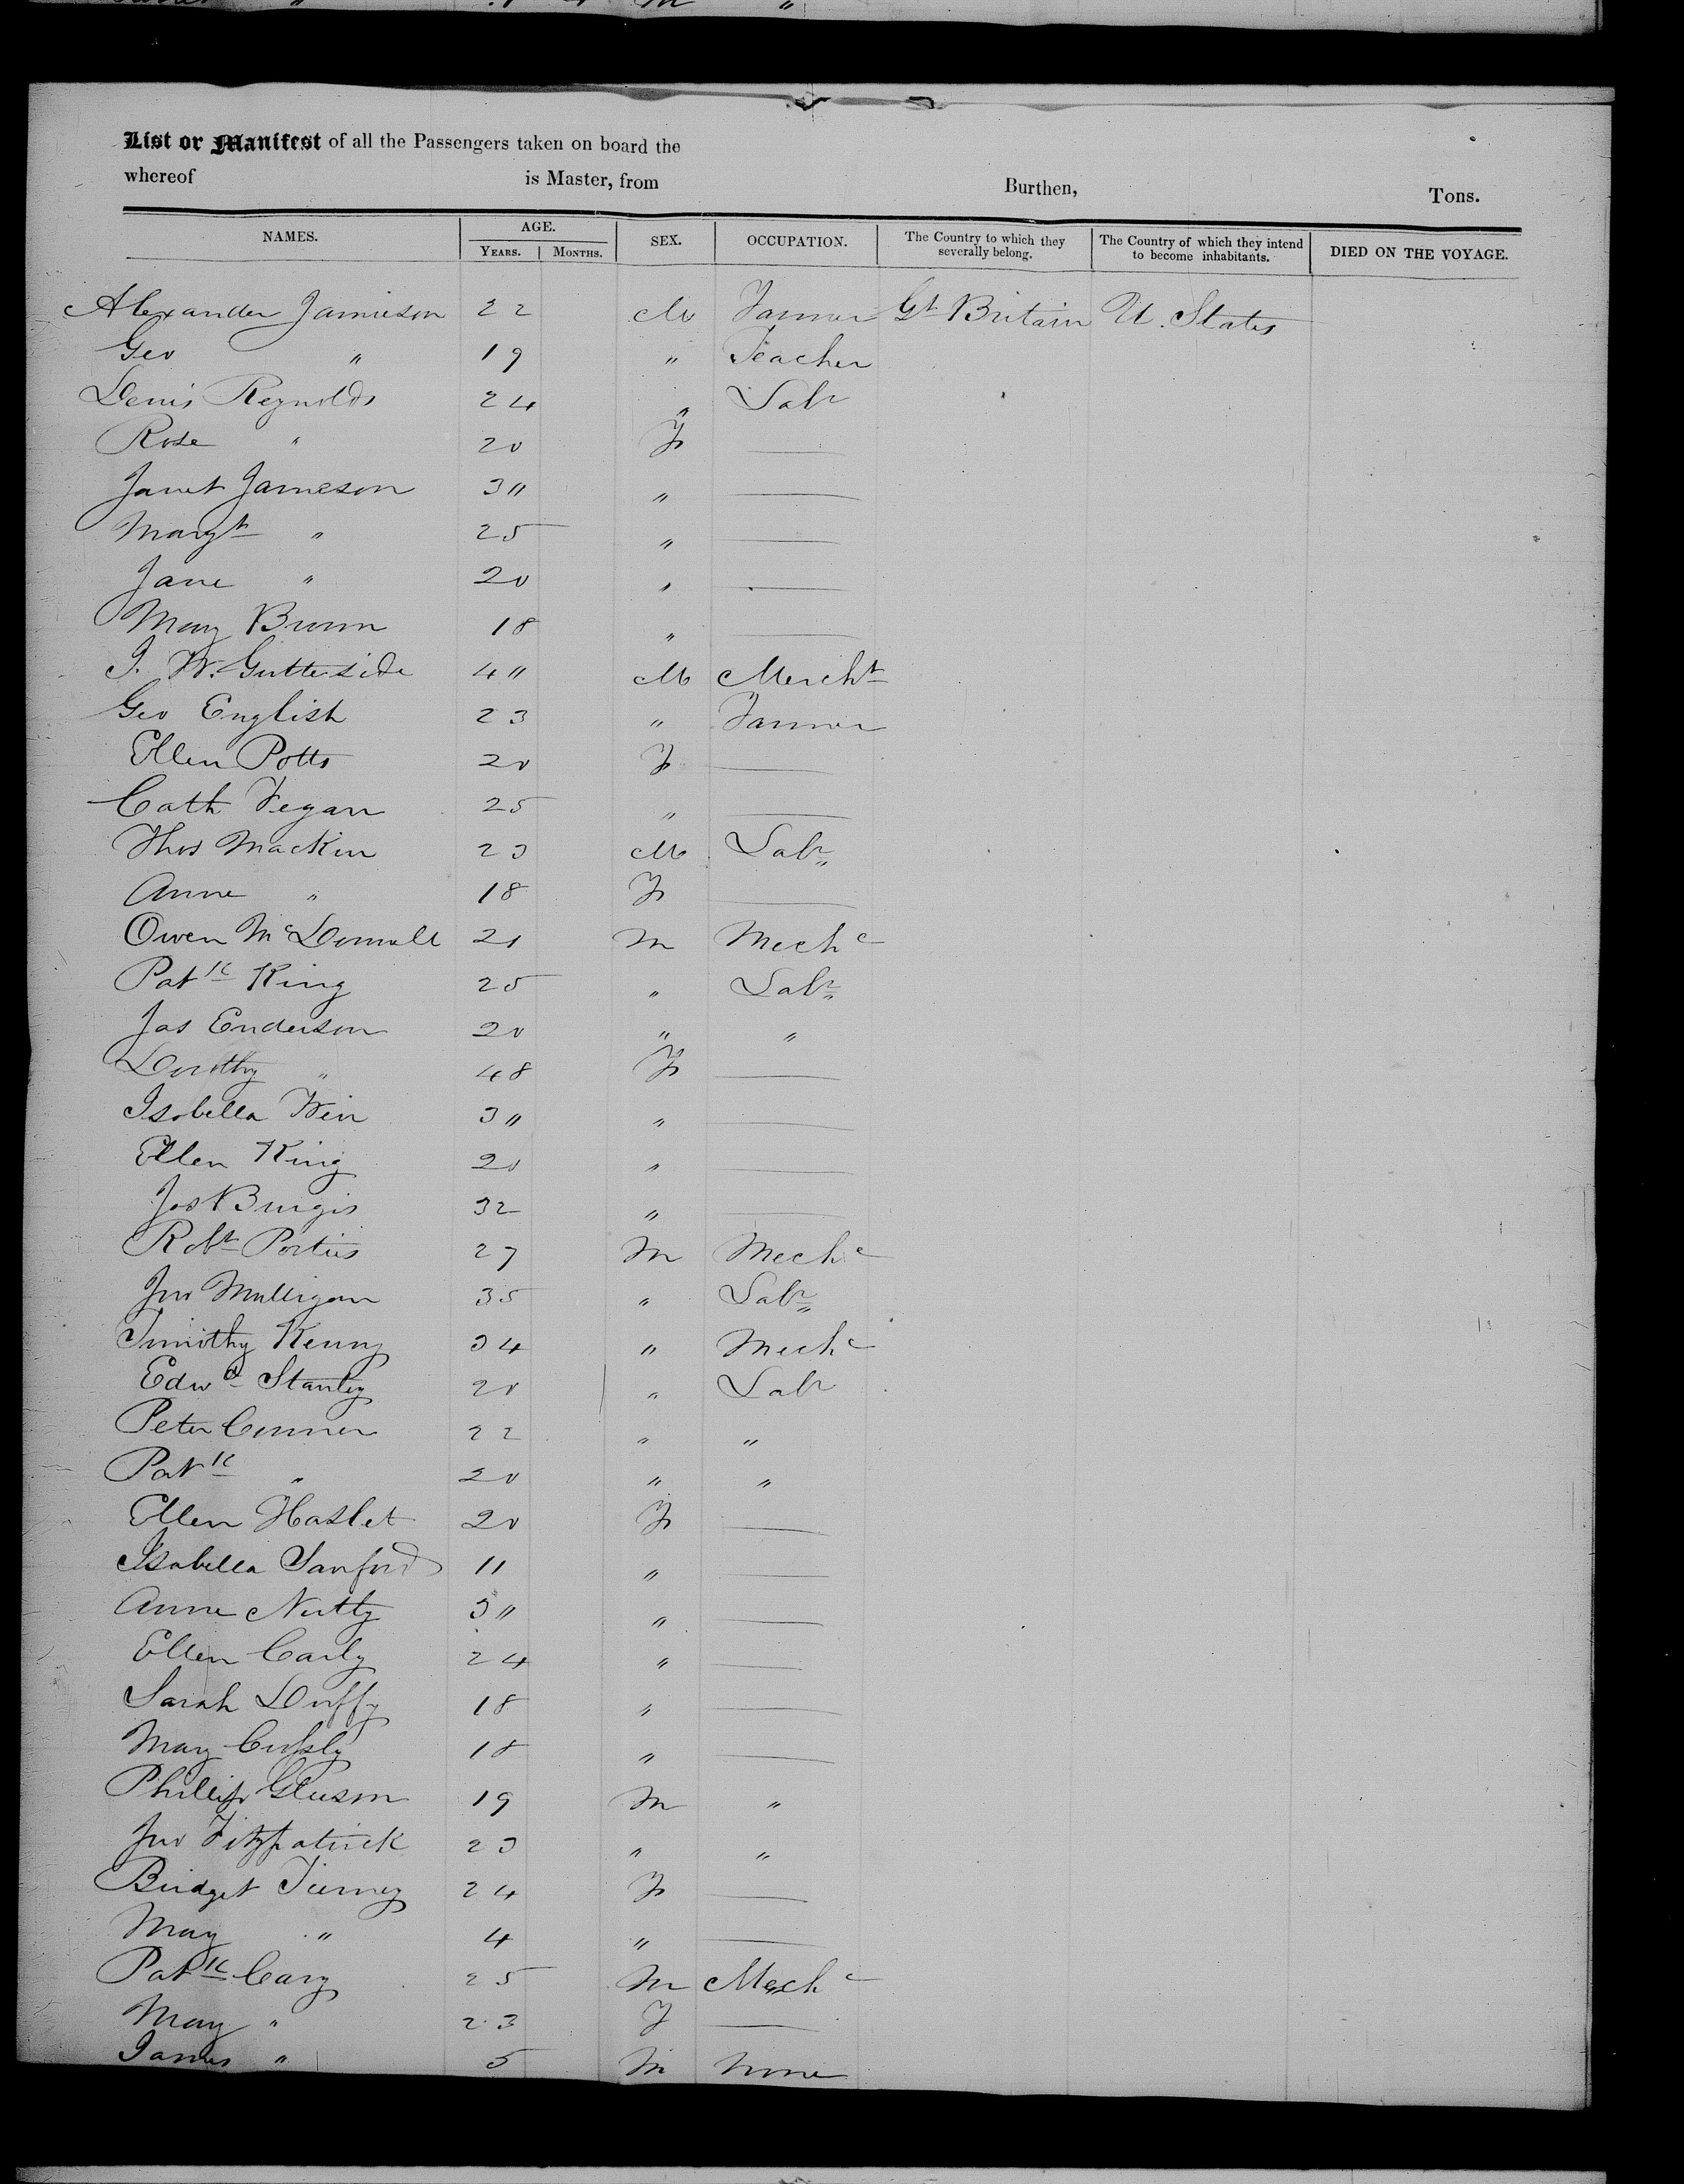 List or Manifest of all the Passengers taken on board the
whereof is Master, from Burthen, Tons.
NAMES. AGE. YEARS. MONTHS. SEX. OCCUPATION. The Country to which they severally belong. The Country of which they intend to become inhabitants. DIED ON THE VOYAGE.
Alexander Jamieson 22 M Farmer Gt Britain U. States
Geo " 19 " Teacher
Denis Reynolds 24 " Labr
Rose " 20 F —
Janet Jameson 3" " —
Margt " 25 " —
Jane " 20 " —
Mary Brown 18 " —
J. W. Gutterside 4" M Mercht
Geo English 23 " Farmer
Ellen Potts 20 F —
Cath Fegan 25 " —
Thos Mackin 23 M Labr
Anne " 18 F —
Owen McDonnall 21 M Mechc
Patk King 25 " Labr
Jas Enderson 20 " "
Dorothy " 48 F —
Isabella Weir 3" " —
Ellen King 20 " —
Jos Burgis 32 " —
Robt Porties 27 M Mechc
Jno Mulligan 35 " Labr
Timothy Kenny 34 " Mechc
Edwd Stanley 20 " Labr
Peter Conner 22 " "
Patk " 20 " "
Ellen Haslet 20 F —
Isabella Sanford 11 " —
Anne Nutty 3" " —
Ellen Carly 24 " —
Sarah Duffy 18 " —
Mary 18 " —
Phillip Gleeson 19 M "
Jno Fitzpatrick 23 " "
Bridget Tierney 24 F —
Mary " 4 " —
Patk Cary 25 M Mechc
Mary " 23 F —
James " 5 M None